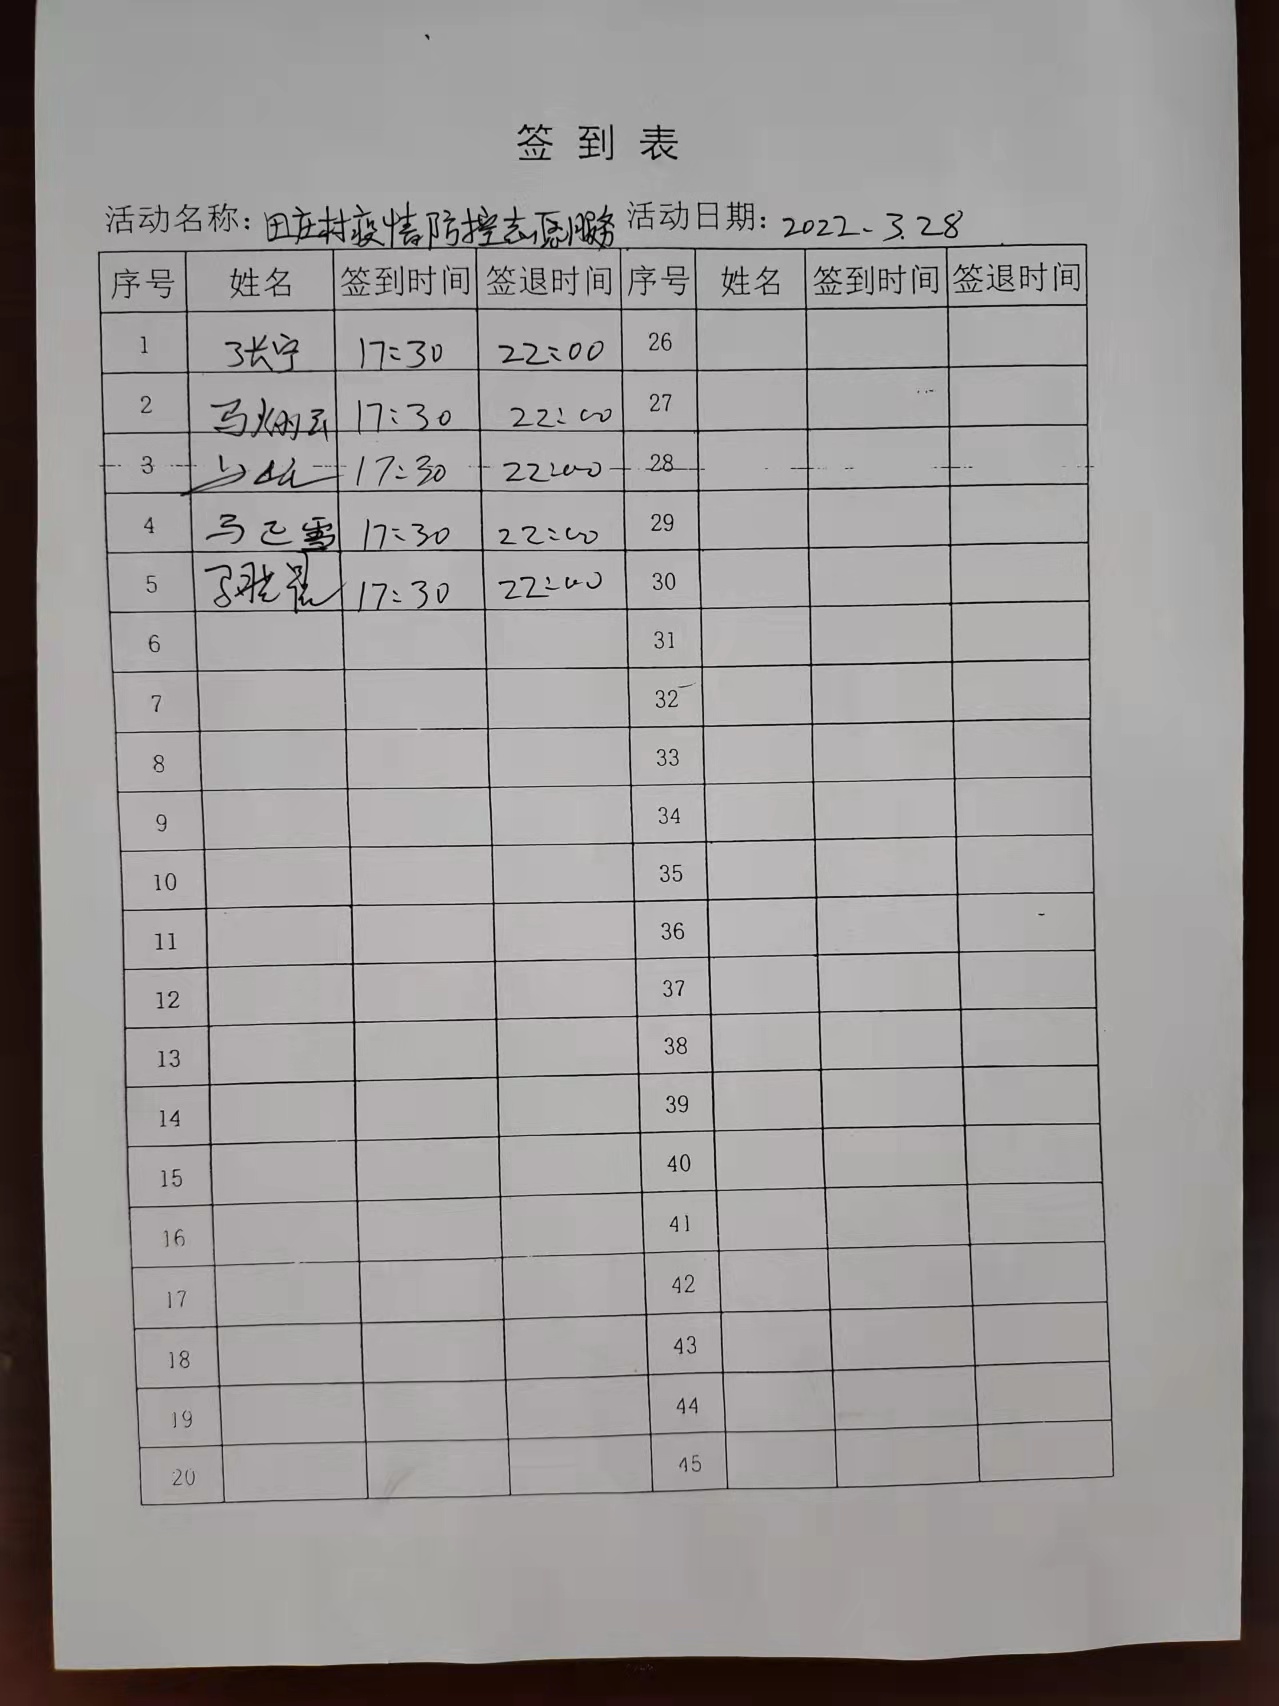 签到表
活动名称：田庄村疫情防控志愿服务 活动日期：2022.3.28
序号 姓名 签到时间 签退时间 序号 姓名 签到时间 签退时间
1 张宁 17:30 22:00 26
2 马炳云 17:30 22:00 27
3 17:30 22:00 28
4 马己雪 17:30 22:00 29
5 17:30 22:00 30
6 31
7 32
8 33
9 34
10 35
11 36
12 37
13 38
14 39
15 40
16 41
17 42
18 43
19 44
20 45